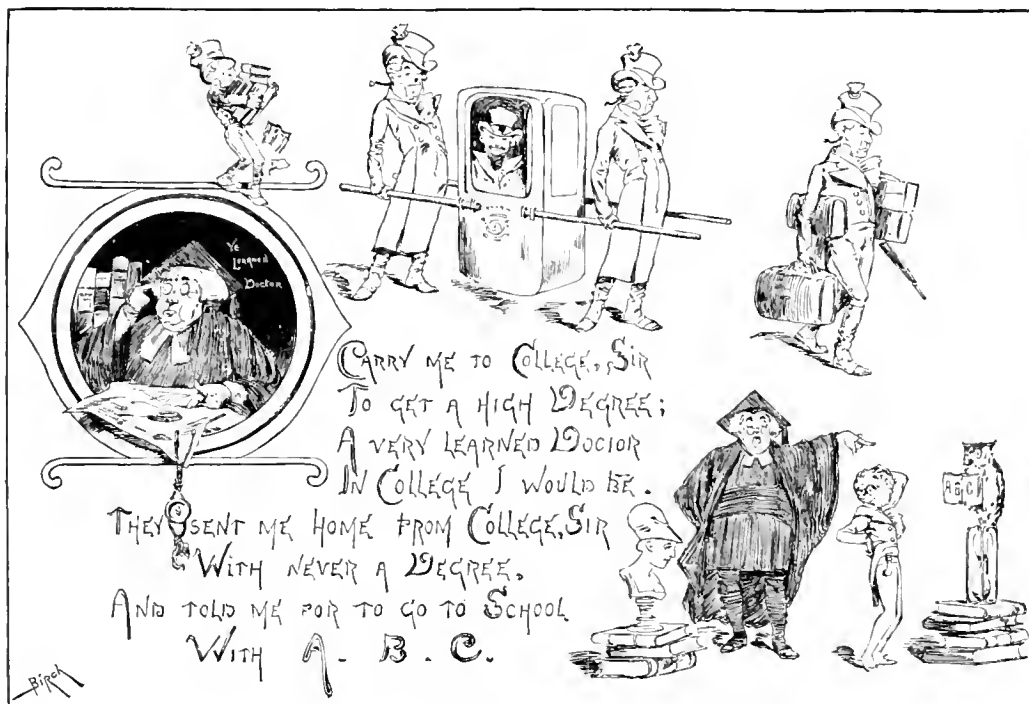 Ye
Learned
Doctor
Carry me to College, Sir
To get a high Degree;
A very learned Doctor
In College I would be.
They sent me home from College, Sir
With never a Degree,
And told me for to go to School
With A. B. C.
A B C
Birch